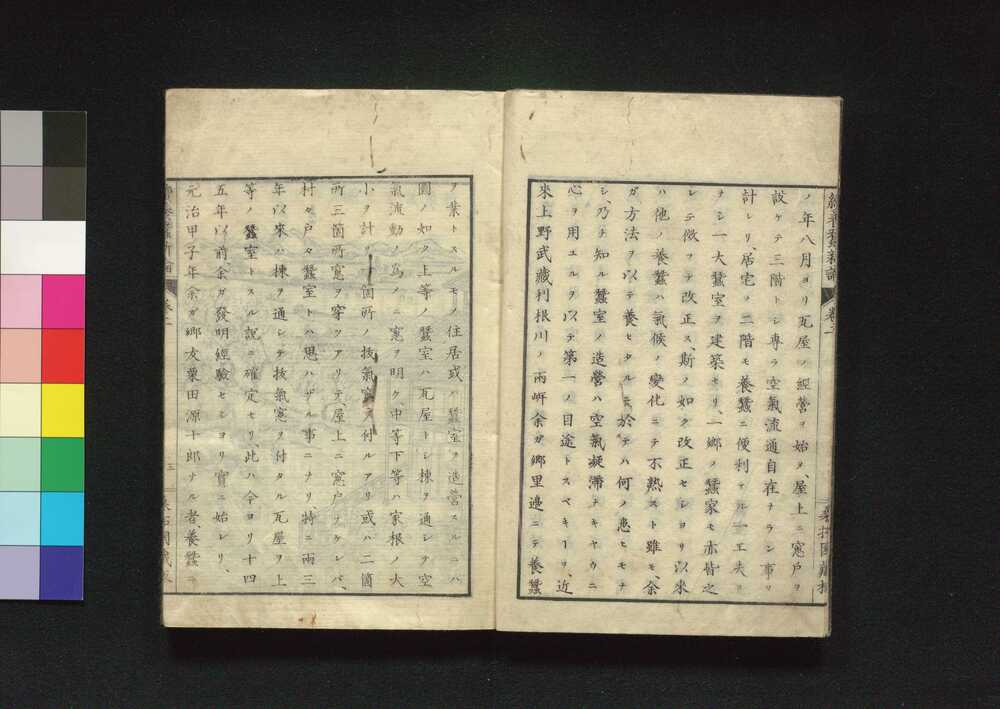 ノ年八月ヨリ瓦屋ノ經營ヲ始メ、屋上ニ窓戸ヲ
設ケテ三階トシ専ラ空氣流通自在ナラン事ヲ
計レリ、居宅ノ二階モ養蚕ニ便利ナル一工夫ヲ
ナシ一大蚕室ヲ建築セリ、一郷ノ蚕家モ亦皆之
レニ倣ツテ改正ス、斯ノ如ク改正セシヨリ以來
ハ他ノ養蚕ハ氣候ノ變化ニテ不熟スト雖モ、余
ガ方法ヲ以テ養ヒタルニ於テハ何ノ患ヒモナ
シ、乃チ知ル蚕室ノ造營ハ空氣凝滯ナキヤウニ
心ヲ用エルヲ以テ第一ノ目途トスベキ一ヲ、近
來上野武藏利根川ノ兩岸余ガ郷里邊ニテ養蚕
ヲ業トスルモノ住居或ハ蚕室ヲ造營スルニハ
圖ノ如ク上等ノ蚕室ハ瓦屋トシ棟ヲ通シテ空
氣流動ノ爲メニ窓ヲ明ク、中等下等ハ家根ノ大
小ヲ計リ一個所ノ拔氣窓ヲ付ルアリ或ハ二箇
所三箇所窓ヲ穿ツアリテ屋上ニ窓戸ナケレバ、
村々戸々蚕室トハ思ハザル事ニナリ特ニ兩三
年以來ハ棟ヲ通シテ拔氣窓ヲ付タル瓦屋ヲ上
等ノ蚕室トスル説ニ確定セリ、此ハ今ヨリ十四
五年以前余ガ發明經驗セシヨリ實ニ始レリ、
元治甲子年余ガ郷友栗田源十郎ナル者、養蚕ニ
卷二
三